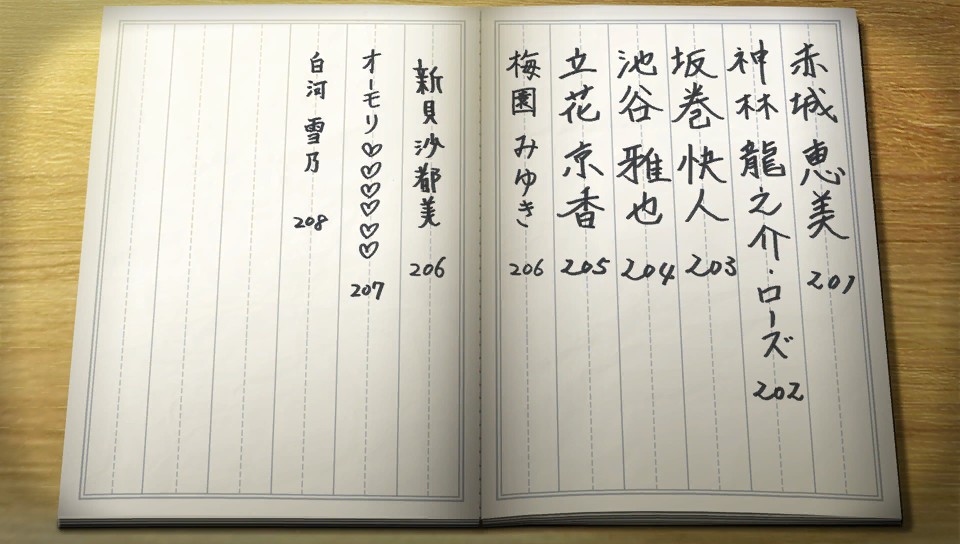 赤城 恵美 201
神林 龍之介・ローズ 202
坂巻 快人 203
池谷 雅也 204
立花 京香 205
梅園 みゆき 206
新貝 沙都美 206
オーモリ♡♡♡♡♡♡ 207
白河 雪乃 208